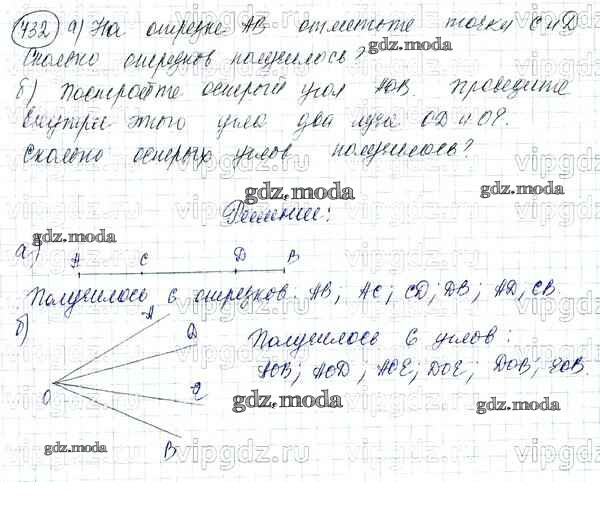 432 а) На отрезке AB отметьте точку C и D
gdz.moda
Сколько отрезков получилось?
б) Постройте острый угол AOB. Проведите
внутри этого угла два луча OD и OE.
Сколько острых углов получилось?
vipgdz.ru
gdz.moda
gdz.moda
Решение:
gdz.moda
а)
A C D B
Получилось 6 отрезков: AB; AC; CD; DB; AD, CB.
б)
A
D
E
O
B
Получилось 6 углов:
AOB; AOD; AOE; DOE; DOB; EOB.
gdz.moda
gdz.moda
gdz.moda
vipgdz.ru
gdz.moda